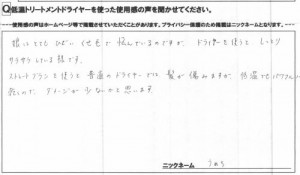 Q低温トリートメントドライヤーを使った使用感の声を聞かせてください。
使用感の声はホームページ等で掲載させていただくことがあります。プライバシー保護のため掲載はニックネームとなります。
娘はとても ひどい くせ毛で 悩んでいるのですが、ドライヤーを使うと しっとり
サラサラしている様です。
ストレートアイロンを使うと 普通のドライヤーでは 髪が 傷みますが、低温でもパワフルに
乾くので、ダメージが 少ないかと思います。
ニックネーム